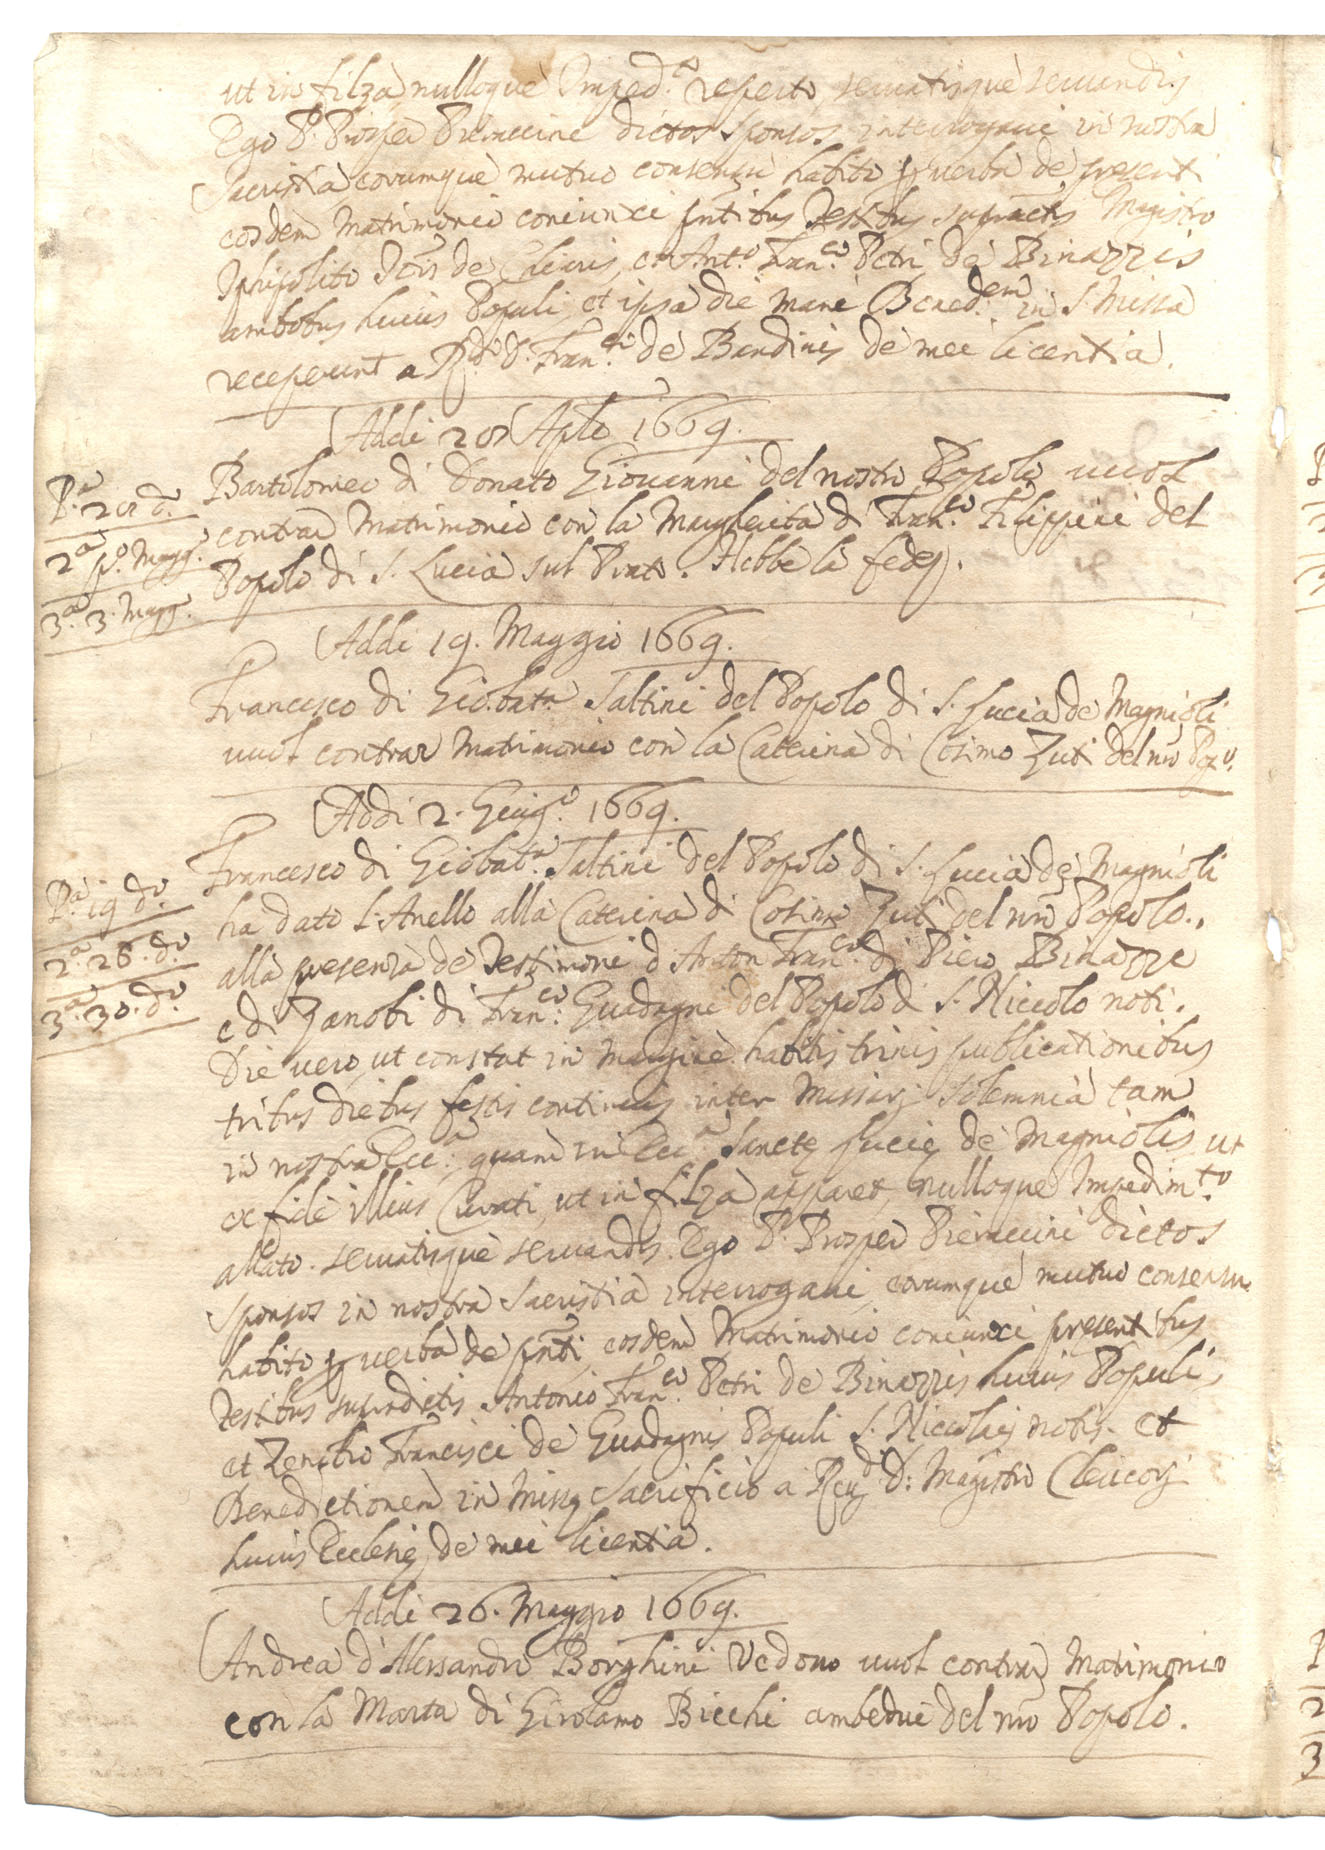 ut in filza, nulloque Imped.o reperto, servatisque servandis
Ego P. Prosper Pieraccini dictos sponsos interrogavi in nostra
Sacristia eorumque mutuo consensu habito p verba de present
eosdem Matrimonio coniunxi pntibus Testibus Magistro
Iphipolito de Chiaris, et Ant.o Fran.co Petri de Binazzis
ambobus huius Populi, et ipsa die mane Bened.em in S. Missa
receperunt a R.do D. Fran.co de Bandinis de mei licentia.
Addi 28 Aple 1669.
Bartolomeo di Donato Giovanni del nostro Popolo vuol
contrar Matrimonio con la Margherita di Fran.co Filippini del
Popolo di S. Lucia sul Prato. Hebbe la fede.
P.a 28 d.o
2.a p.o Magg.
3.a 3. Magg.
Addi 19. Maggio 1669.
Francesco di Giobat.a Saltini del Popolo di S. Lucia de Magnioli
vuol contrar Matrimonio con la Caterina di Cosimo Zuti del nro Pop.o
Addi 2. Giug.o 1669.
Francesco di Giobat.a Saltini del Popolo di S. Lucia de Magnioli
ha dato l'Anello alla Caterina di Cosimo Zuti del nro Popolo,
alla presenza de Testimoni d'Anton Fran.co di Piero Binazzi
e di Zanobi di Fran.co Guadagni del Popolo di S. Niccolo noti.
P.a 19 d.o
2.a 26. d.o
3.a 30. d.o
Die vero, ut constat in margine habitis trinis publicationibus
tribus diebus festis continuis inter Missarum solemnia tam
in nostra Ecc.a quam in Ecc.a Sancte Lucie de Magniolis, ut
ex fide illius Curati, ut in filza apparet, nulloque Impedim.to
allato. servatisque servandis. Ego P. Prosper Pieraccini dictos
sponsos in nostra Sacristia interrogavi, eorumque mutuo consensu
habito p verba de pnti, eosdem Matrimonio coniunxi presentibus
Testibus supradictis Antonio Fran.co Petri de Binazzis huius Populi,
et Zenobio Francisci de Guadagnis Populi S. Niccolai notis. et
Benedictionem in Misse sacrificio a Reu.do D: Magistro Clericorum
huius Ecclesie de mei licentia.
Addi 26. Maggio 1669.
Andrea d'Alessandro Borghini Vedovo vuol contrar Matrimonio
con la Marta di Girolamo Bicchi ambedue del nro Popolo.